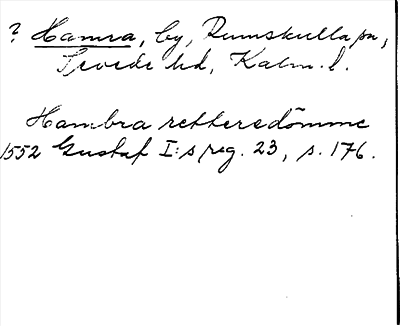 ? Hamra, by, Rumskulla sn,
Sevede hd, Kalm. l.
Hambra rettersdömme
1552 Gustaf I:s reg. 23, s. 176.